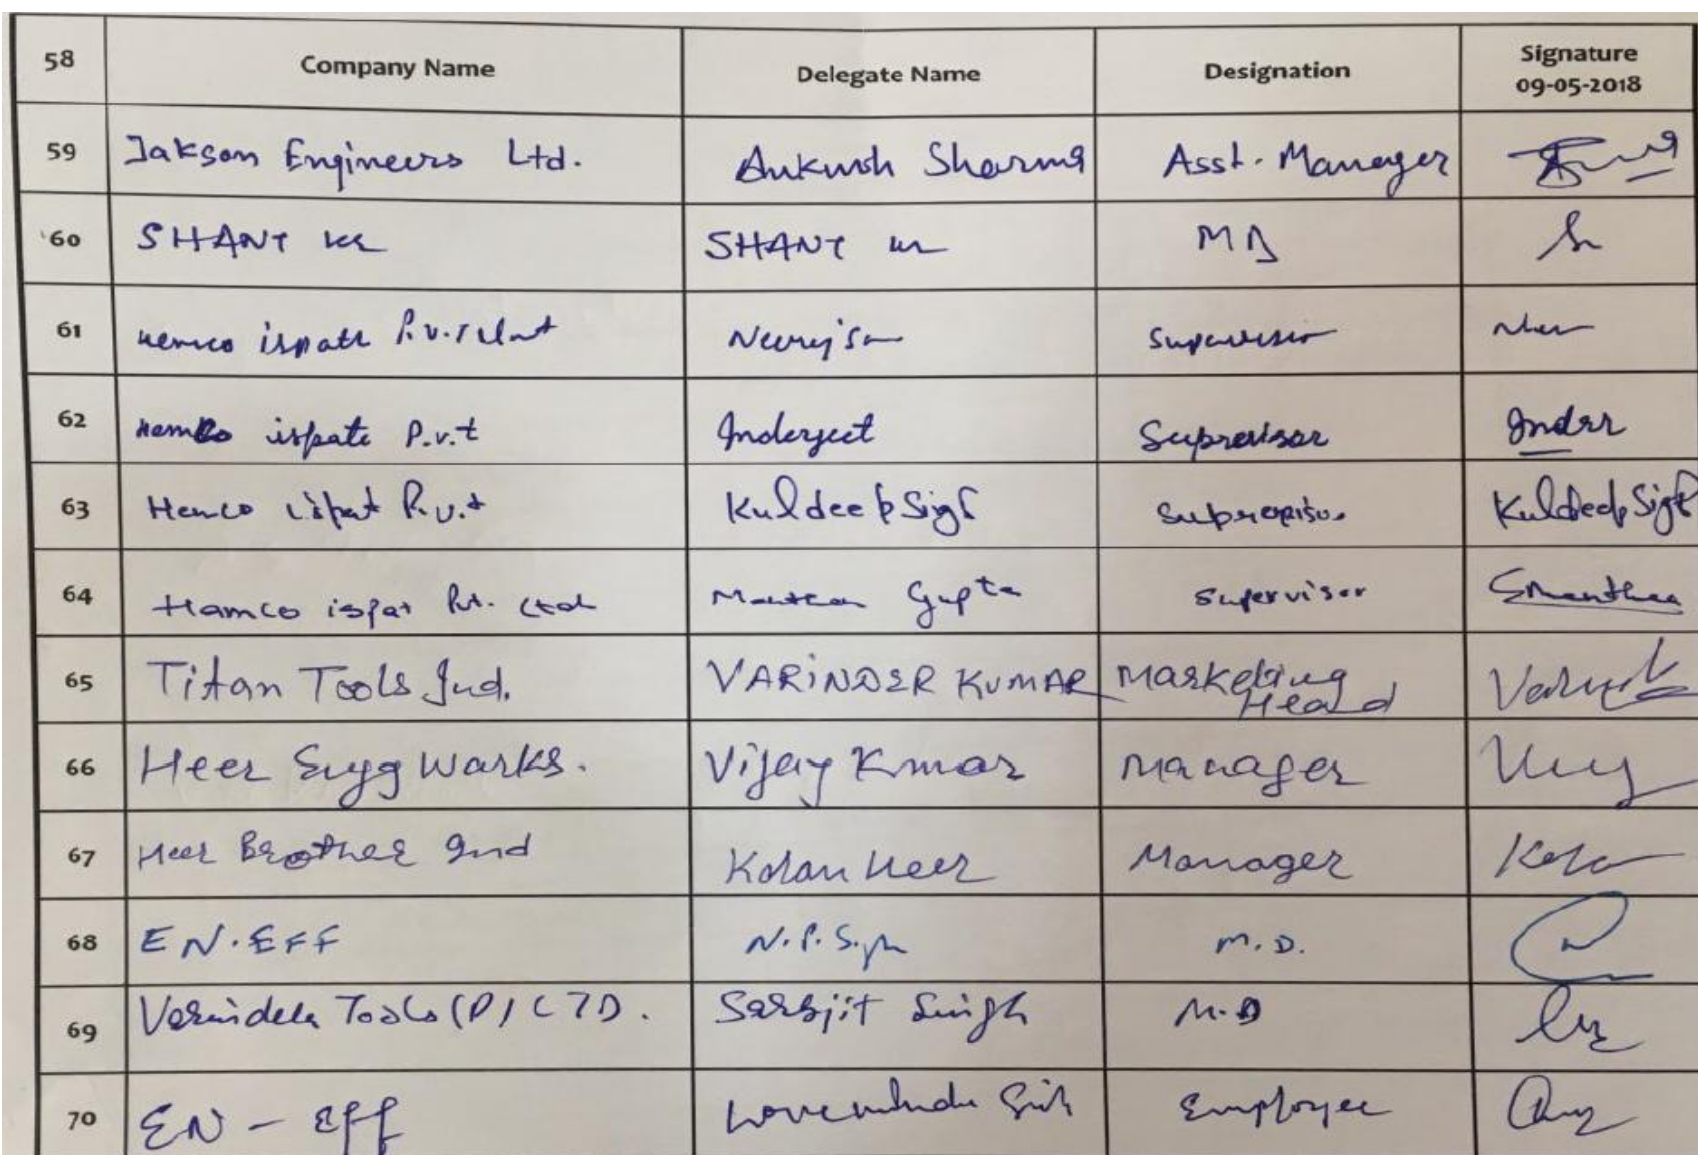 58 Company Name Delegate Name Designation Signature
09-05-2018
59 Jakson Engineers Ltd. Ankush Sharma Asst. Manager
60 SHANT SHANT MD
61 hemco ispate P.v.t Supervisor
62 hemco ispate P.v.t Inderjeet Suprevisor Inder
63 Hemco ispat P.v.t Kuldeep Sigh Kuldeep Sigh
64 Hamco ispat Pvt. Ltd Gupta Supervisor
65 Titan Tools Ind. VARINDER KUMAR Marketing
Head
66 Heer Engg Warks. Vijay Kmar Manager
67 Heer Brother Ind Heer Manager
68 EN.EFF N.P. M.D.
69 Tools (P) LTD. Sarbjit Singh M.D
70 EN - Eff Employee